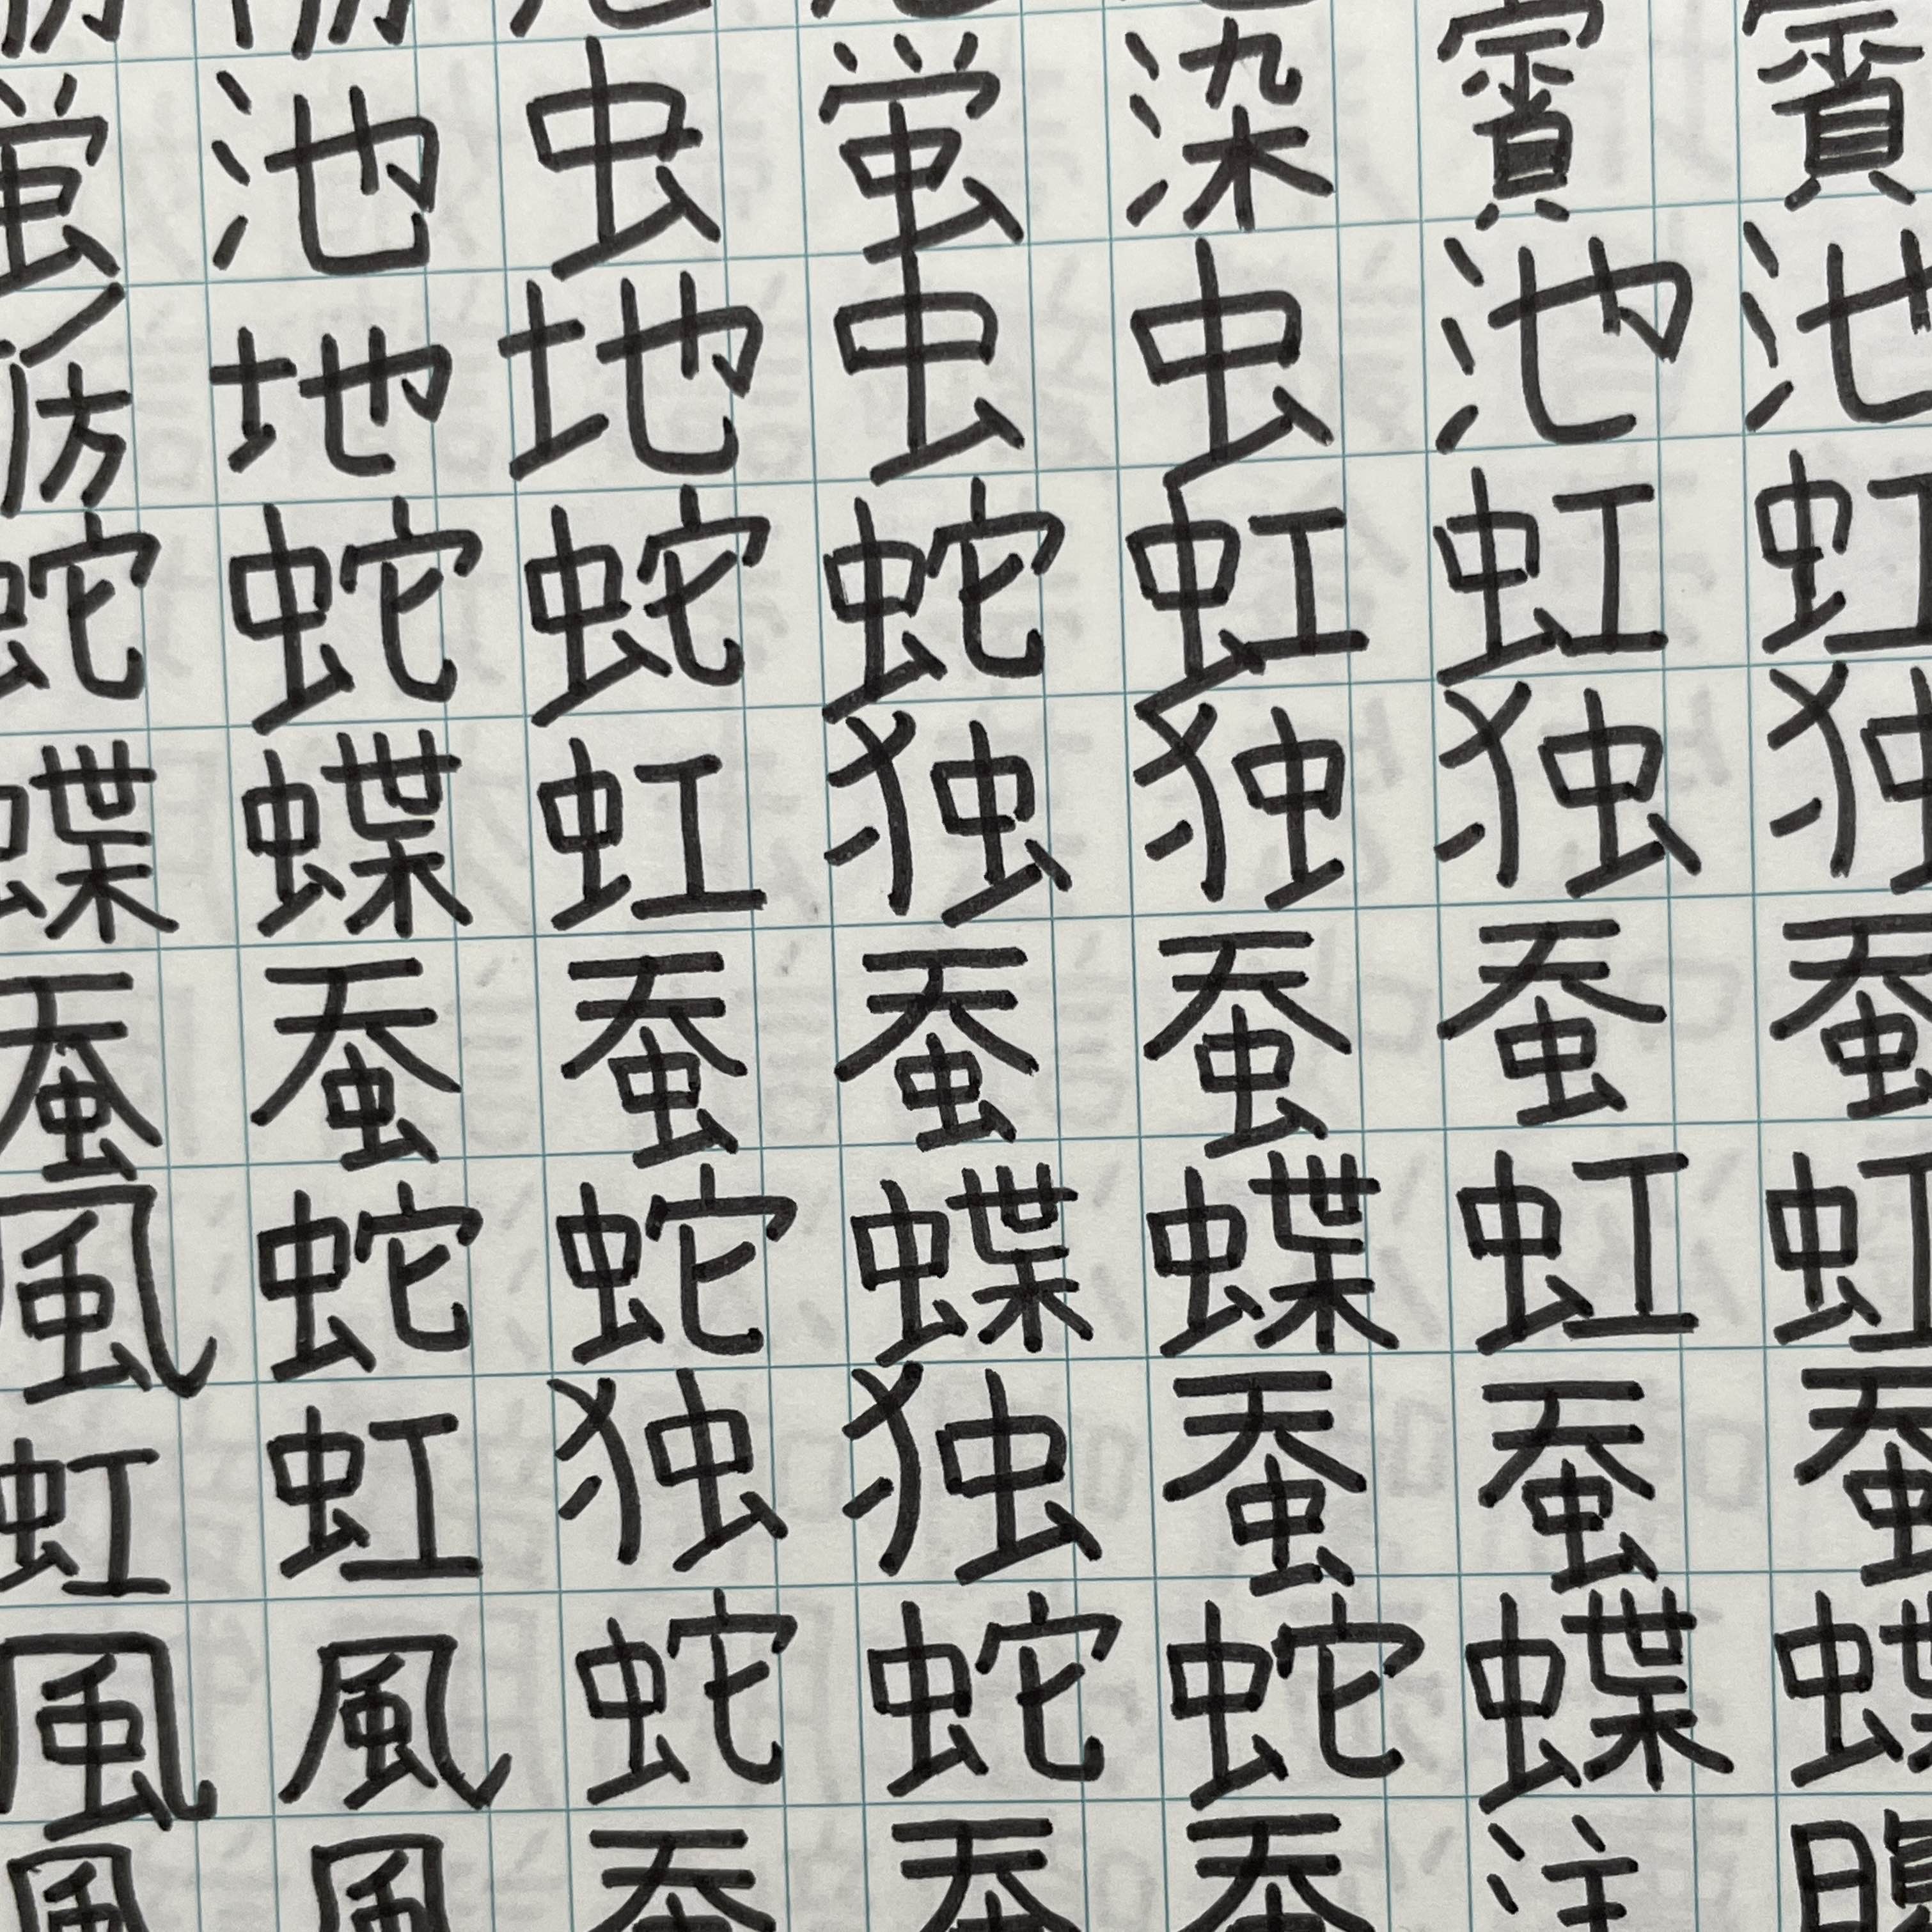 賓池虹独蚕虹蚕蝶
賓池虹独蚕虹蚕蝶注
染虫虹独蚕蝶蚕蛇蚕
蛍虫蛇独蚕蝶独蛇蚕
虫地蛇虹蚕蛇独蛇蚕
池地蛇蝶蚕蛇虹風風
蛍蛇蝶蚕風虹風風